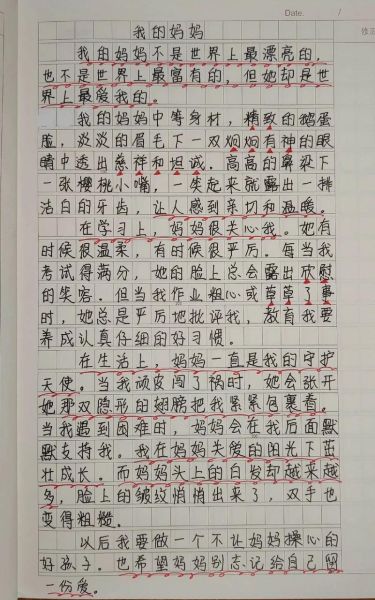 Date. /
修正
我的妈妈
我的妈妈不是世界上最漂亮的,
也不是世界上最富有的,但她却是世
界上最爱我的。
我的妈妈中等身材,精致的鹅蛋
脸,淡淡的眉毛下一双炯炯有神的眼
睛中透出慈祥和坦诚,高高的鼻梁下
一张樱桃小嘴,一笑起来就露出一排
洁白的牙齿,让人感到亲切和温暖。
在学习上,妈妈很关心我。她有
时候很温柔,有时候很严厉。每当我
考试得满分,她的脸上总会露出欣慰
的笑容。但当我作业粗心或草草了事
时,她总是严厉地批评我,教育我要
养成认真仔细的好习惯。
在生活上,妈妈一直是我的守护
天使。当我顽皮闯了祸时,她会张开
她那双隐形的翅膀把我紧紧包裹着。
当我遇到困难时,妈妈会在我后面默
默支持我。我在妈妈关爱的阳光下茁
壮成长。而妈妈头上的白发却越来越
多,脸上的皱纹悄悄出来了,双手也
变得粗糙。
以后我要做一个不让妈妈操心的
好孩子。也希望妈妈别忘记给自己留
一份爱。